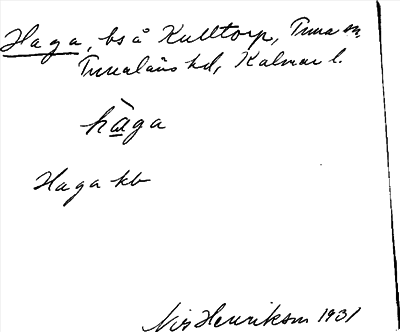 Haga, bs å Kulltorp, Tuna sn,
Tunaläns hd, Kalmar l.
hàga
Haga kb
Henrikson 1931